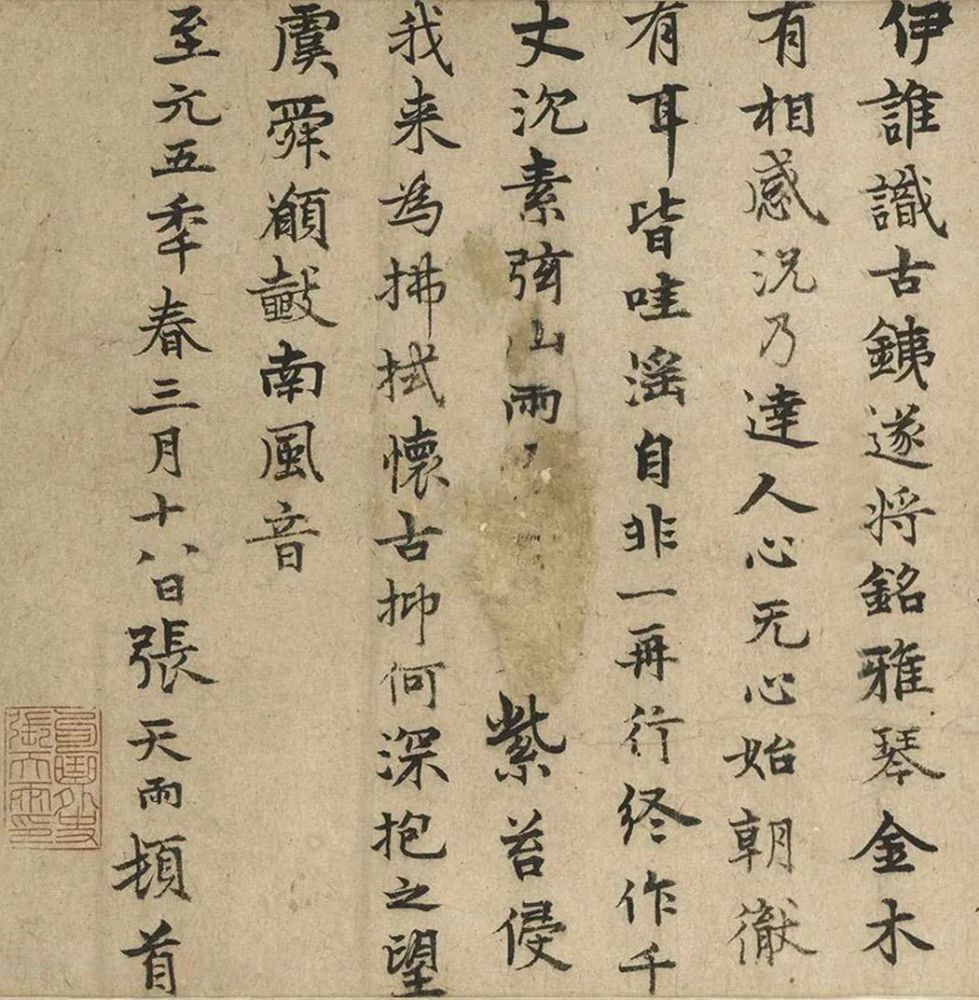 伊誰識古銕遂将銘雅琴金木
有相感況乃達人心无心始朝徹
有耳皆哇滛自非一再行终作千
丈沉素弦山雨紫苔侵
我来為拂拭懷古抑何深抱之望
虞舜願鼔南風音
至元五秊春三月十八日張天雨頓首
句曲外史
張天雨印